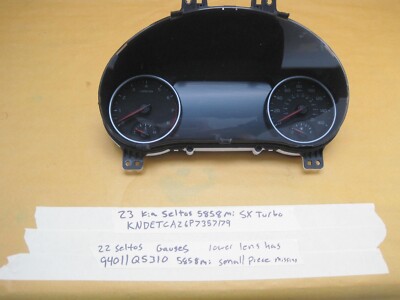 23 Kia Seltos 5858mi SX Turbo
KNDETCA26P7357179
22 seltos Gauges lower lens has
94011Q5310 5858mi small Piece missing